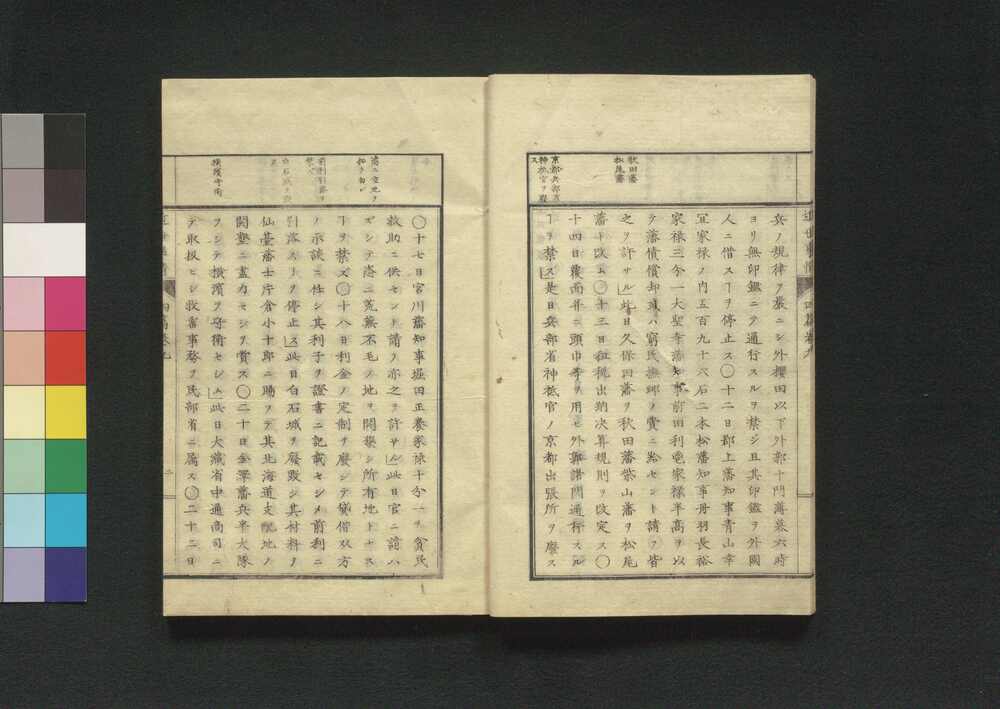 秋田藩
松尾藩
京都兵部省
神祇官ヲ廢
ス
兵ノ規律ヲ嚴ニシ外櫻田以下外郭十門薄暮六時
ヨリ無印鑑ニテ通行スルヲ禁シ且其印鑑ヲ外國
人ニ借スヿヲ停止ス〇十二日郡上藩知事青山幸
宜家禄ノ内五百九十六石二本松藩知事丹羽長裕
家禄三分一大聖寺藩知事前田利鬯家禄半高ヲ以
テ藩債償却或ハ窮民撫郷ノ費ニ給セント請フ皆
之ヲ許サル」此日久保田藩ヲ秋田藩柴山藩ヲ松尾
藩ト改ム〇十三日租税出納决算規則ヲ改定ス〇
十四日覆面并ニ頭巾等ヲ用ヒ外郭諸門通行スル
ヿヲ禁ス」是日兵部省神祇官ノ京都出張所ヲ廢ス
横濱守衛
〇十七日宮川藩知事堀田正養家禄十分一ヲ貧民
救助ニ供セント請フ亦之ヲ許サル」此日官ニ請ハ
ズシテ恣ニ荒蕪不毛ノ地ヲ開墾シ所有地トナス
ヿヲ禁ズ〇十八日利金ノ定制ヲ廢シテ貸借双方
ノ示談ニ任シ其利子ヲ證書ニ記載セシメ前利ニ
引落スヿヲ停止ス」此日白石城ヲ廢毀シ其材料ヲ
仙臺藩士片倉小十郎ニ賜ヲテ其北海道支配地ノ
開墾ニ盡力セシヲ賞ス〇二十日金澤藩兵半大隊
ヲシテ横濱ヲ守衛セシム」此日大藏省中通商司ニ
テ取扱ヒシ救育事務ヲ民部省ニ屬ス〇二十二日